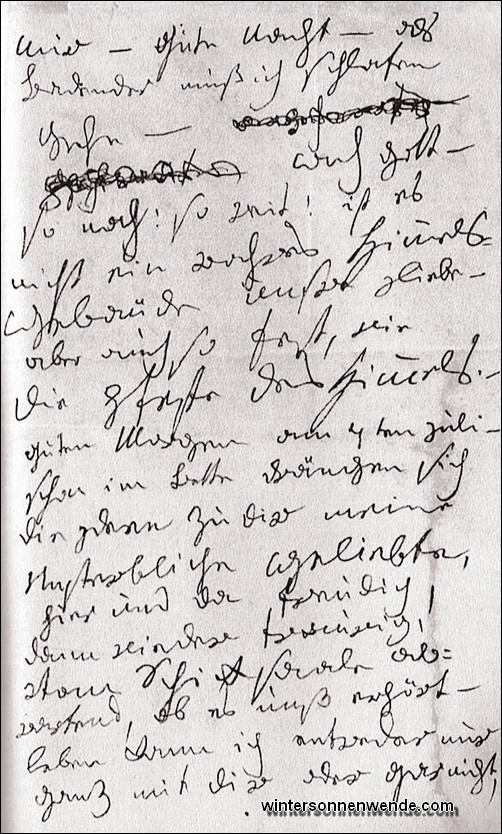 mir — gute Nacht — als
Badender muß ich schlafen
gehn —
ach gott —
so nah! so weit! ist es
nicht ein wahres Himmels-
Gebäude unsre Liebe —
aber auch so fest, wie
die Veste des Himmels. —
guten Morgen am 7ten juli —
schon im Bette drängen sich
die Ideen zu dir meine
Unsterbliche Geliebte,
hier und da freudig,
dann wieder traurig,
vom Schicksaale ab-
wartend, ob es unß erhört —
leben kann ich entweder nur
ganz mit dir oder gar nicht,
wintersonnenwende.com